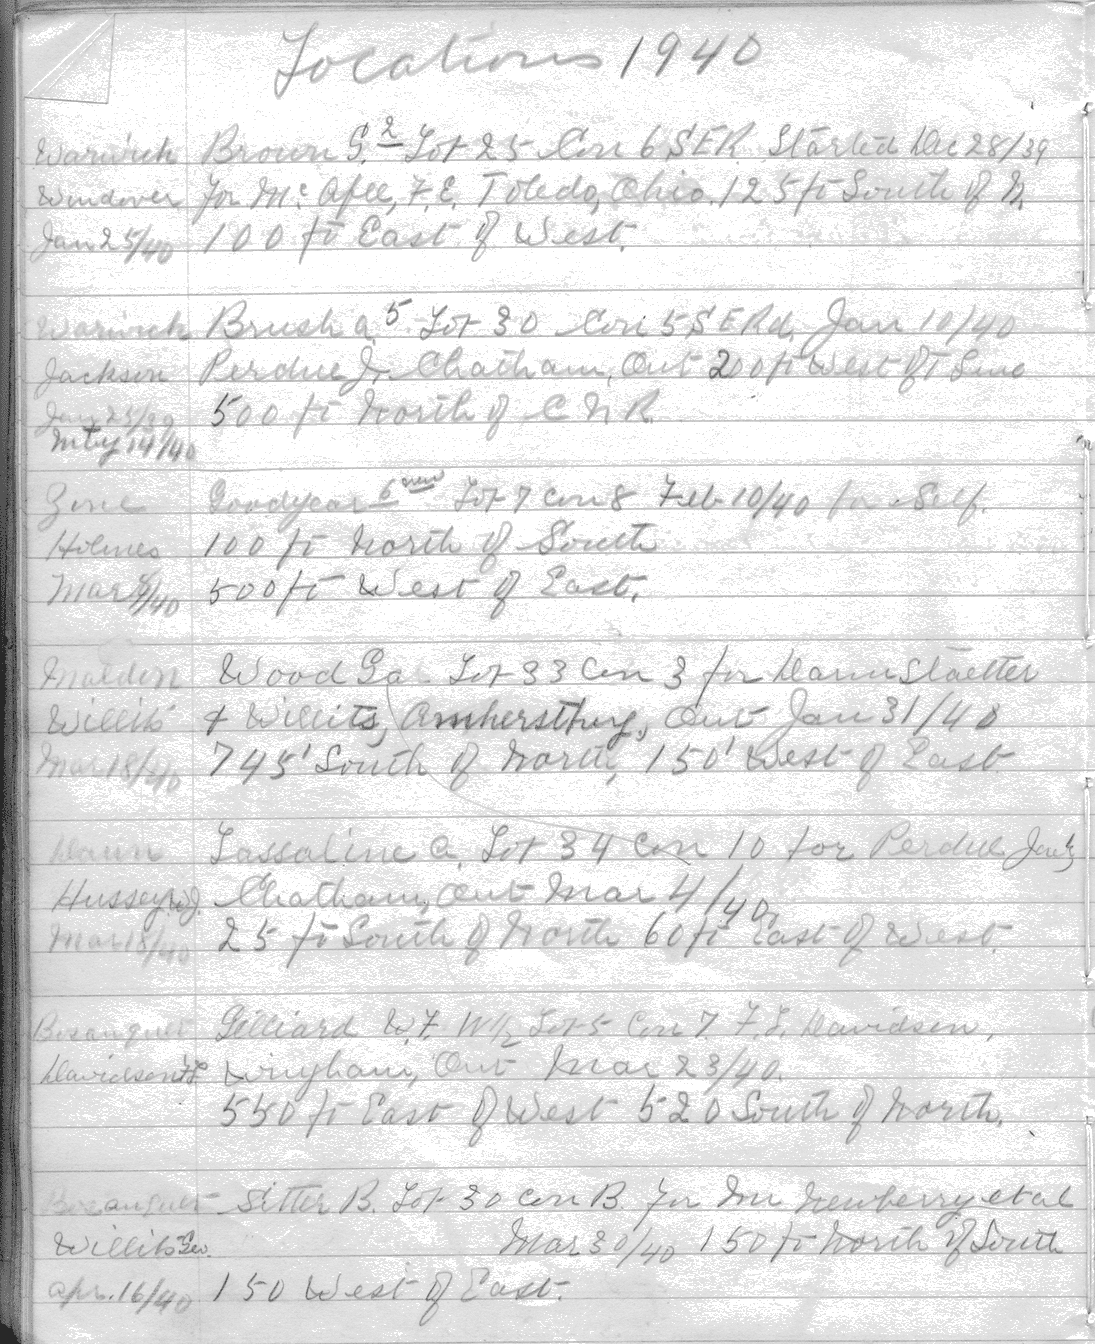 Locations 1940
Warwick Brown G. 2 Lot 25 Con 6 S.E.R. Started Dec 28/39
Windover for Mc Afee, F. E. Toledo, Ohio. 125 ft South of N.
Jan 25/40 100 ft East of West.
Warwick Brush A. 5 Lot 30 Con 5 S E Rd, Jan 10/40
Jackson Perdue J. Chatham, Ont 200 ft West of Line
500 ft North of C N R.
May 14/40
Zone Goodyear 6 Lot 7 Con 8 Feb 10/40 for Self.
Holmes 100 ft North of South
Mar 8/40 500 ft West of East.
Maldin Wood Lot 33 Con 3 for
Willits & Willits, Amherstburg, Ont Jan 31/40
Mar 18/40 745' South of North, 150' West of East
Dawn Lassaline A. Lot 34 Con 10 for Perdue
Hussey W.J. Chatham, Ont Mar 4/40.
Mar 18/40 25 ft South of North 60 ft East of West.
Bosanquet Gilliard W.F. W½ Lot 5 Con 7. F. L. Davidson,
Davidson Wingham, Ont Mar 23/40.
550 ft East of West 520 South of North.
Bosanquet Sitter B. Lot 30 Con B. for Newberry et al
Willits Geo. Mar 30/40 150 ft North of South
Apr. 16/40 150 West of East.